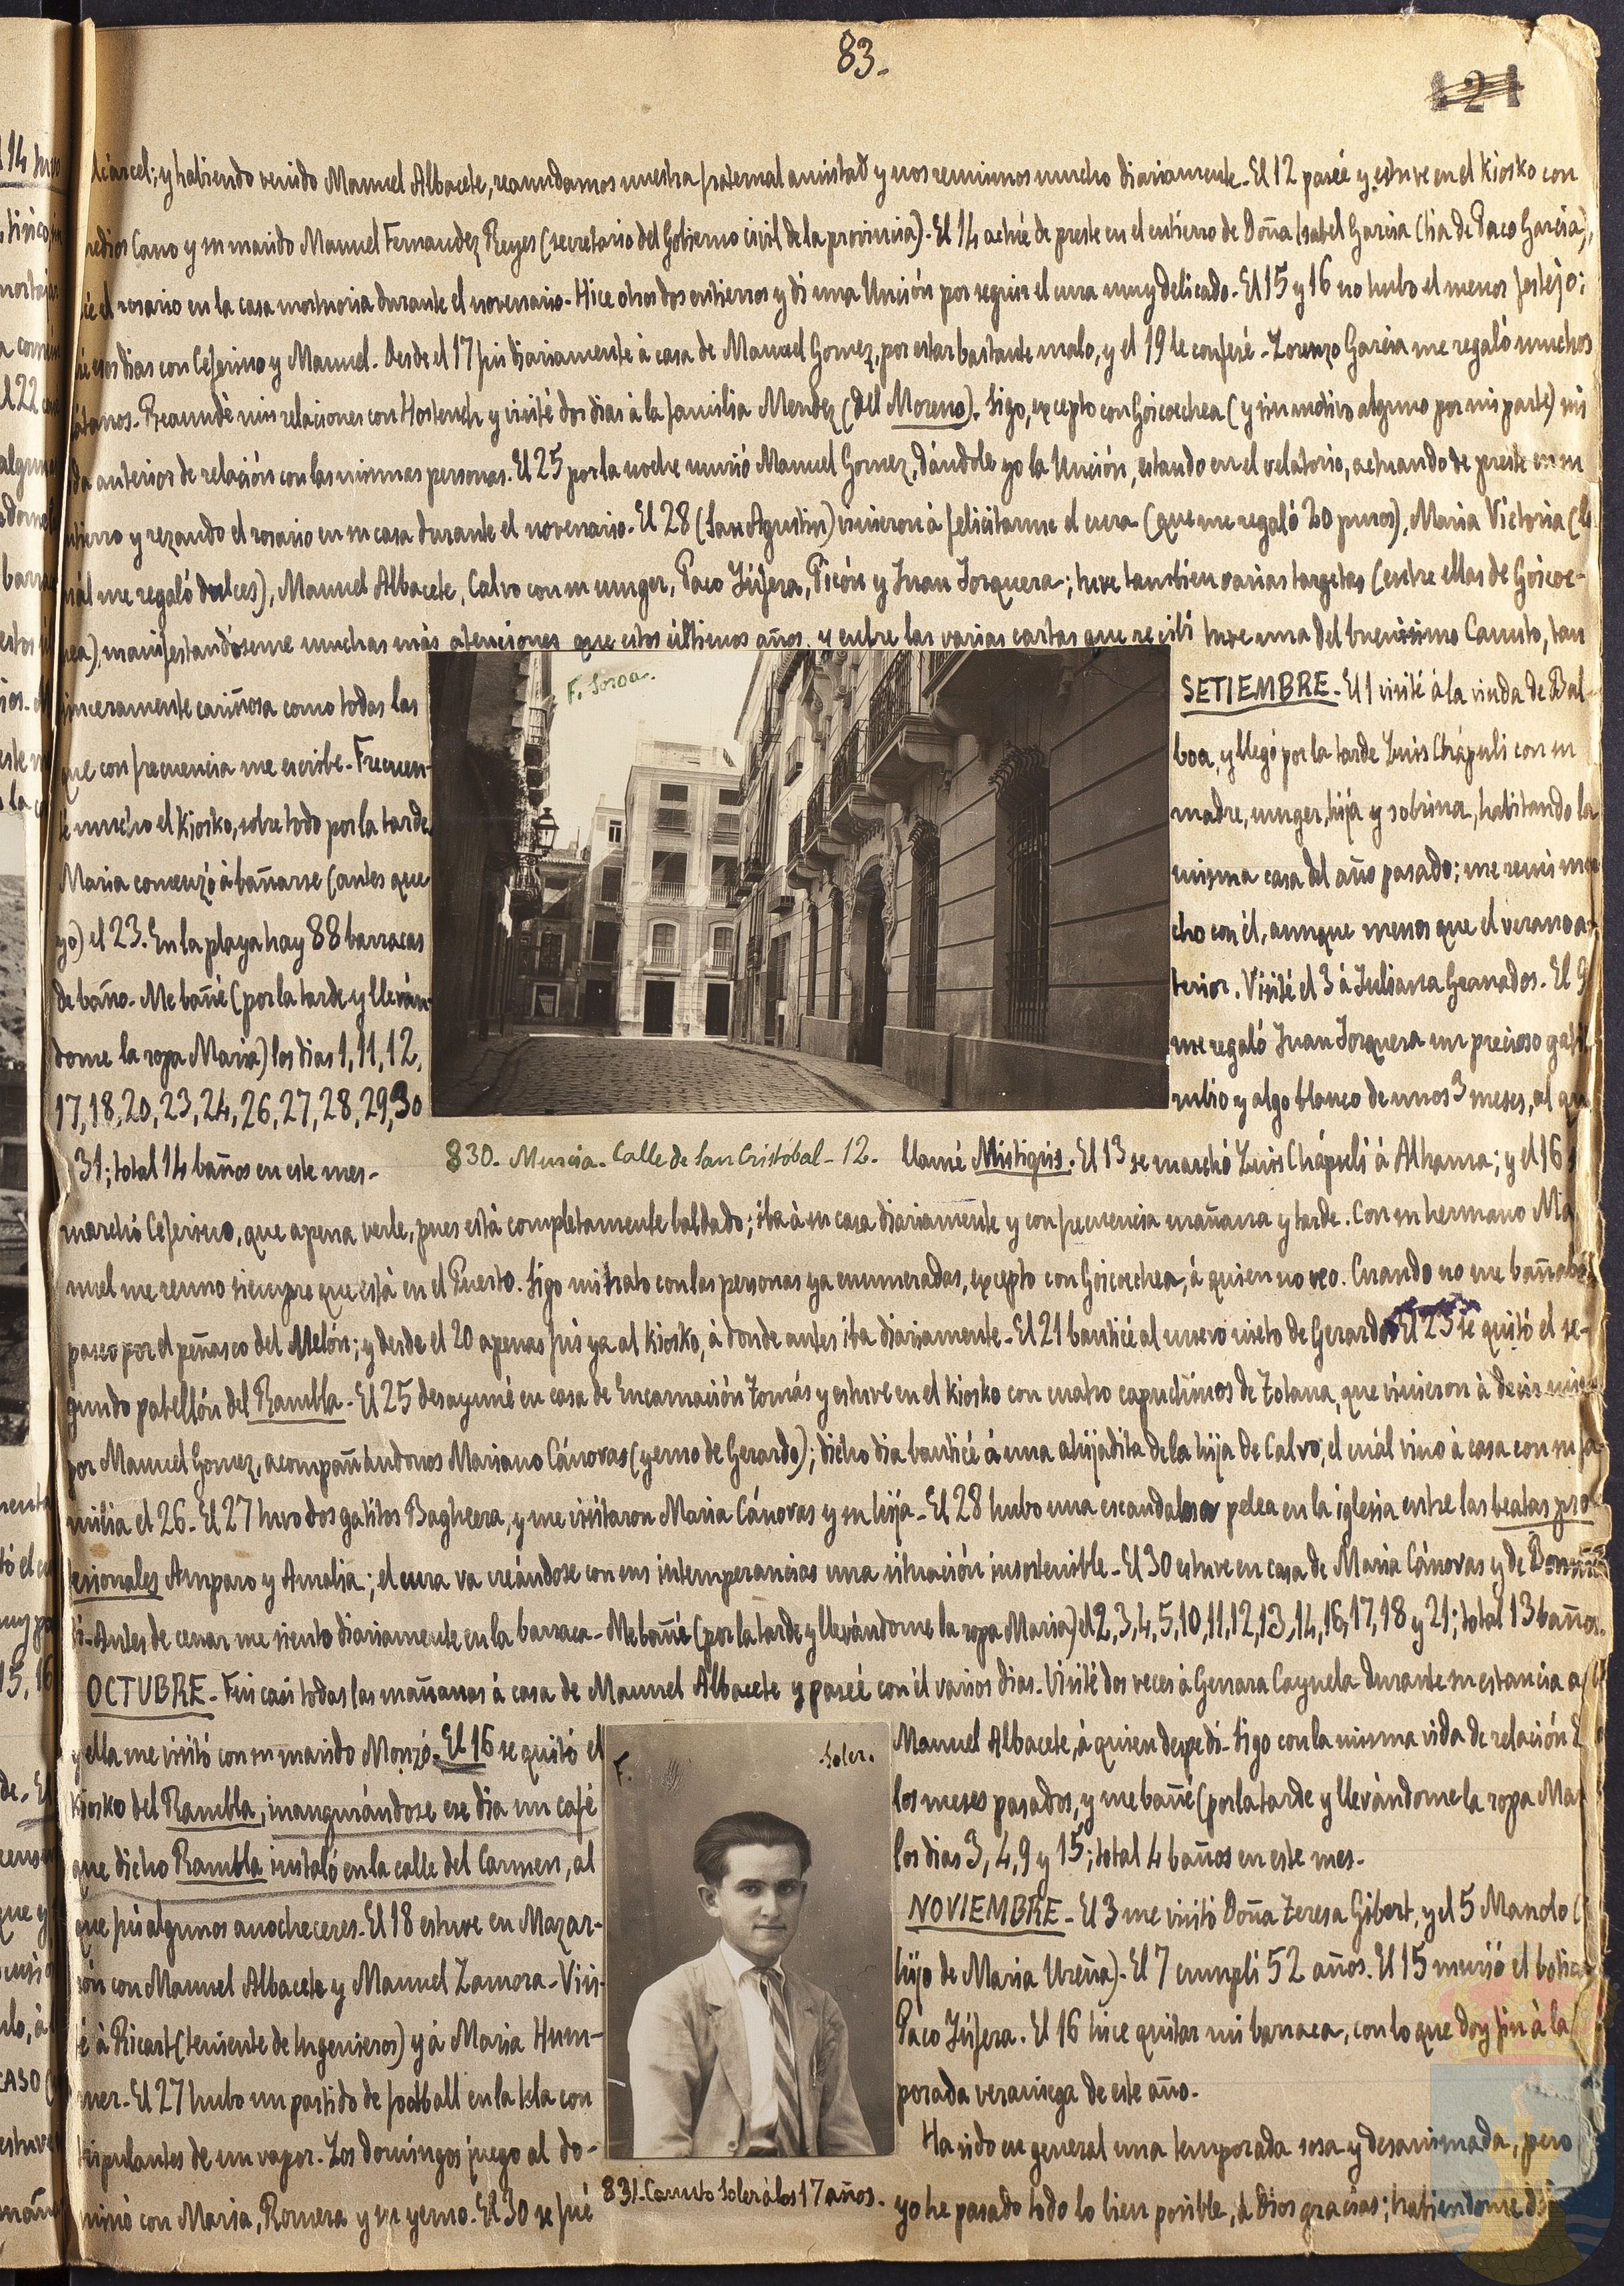 83.
121
cárcel; y habiendo venido Manuel Albacete, reanudamos nuestra fraternal amistad y nos reunimos mucho diariamente. El 12 paseé y estuve en el Kiosko con
Cano y su marido Manuel Fernandez Reyes (secretario del Gobierno civil de la provincia). El 14 actué de preste en el entierro de Doña Isabel Garcia (tia de Paco Garcia),
el rosario en la casa mortuoria durante el novenario. Hice otros dos entierros y di una Unción por seguir el cura muy delicado. El 15 y 16 no hubo el menor festejo;
esos dias con Ceferino y Manuel. Desde el 17 fui diariamente á casa de Manuel Gomez, por estar bastante malo, y el 19 le confesé. Lorenzo Garcia me regaló muchos
Reanudé mis relaciones con Hostench y visité dos dias á la familia Mendez (del Moreno). Sigo, excepto con Goicoechea (y sin motivo alguno por mi parte) mi
anterior de relación con las mismas personas. El 25 por la noche murió Manuel Gomez, dándole yo la Unción, estando en el velatorio, actuando de preste en su
entierro y rezando el rosario en su casa durante el novenario. El 28 (San Agustin) vinieron á felicitarme el cura (que me regaló 20 puros), Maria Victoria (la
cuál me regaló dulces), Manuel Albacete, Calvo con su muger, Paco Júfera, Picón y Juan Jorquera; tuve tambien varias targetas (entre ellas de Goicoe-
chea), manifestandóseme muchas más atenciones que estos últimos años, y entre las varias cartas que recibí tuve una del buenisimo Canuto, tan
sinceramente cariñosa como todas las
que con frecuencia me escribe. Frecuen-
té mucho el Kiosko, sobre todo por la tarde.
Maria comenzó á bañarse (antes que
yo) el 23. En la playa hay 88 barracas
de baño. Me bañé (por la tarde y lleván-
dome la ropa Maria) los dias 1, 11, 12,
17, 18, 20, 23, 24, 26, 27, 28, 29, 30
31; total 14 baños en este mes.
F. Soroa.
830. Murcia. Calle de San Cristóbal - 12.
SETIEMBRE. El 1 visité á la viuda de Bal-
boa, y llegó por la tarde Luis Chápuli con su
madre, muger, hija y sobrina, habitando la
misma casa del año pasado; me reuni mu-
cho con él, aunque menos que el verano an-
terior. Visité el 3 á Juliana Granados. El 9
me regaló Juan Jorquera un precioso gatito
rubio y algo blanco de unos 3 meses, al que
llamé Mistiguis. El 13 se marchó Luis Chápuli á Alhama; y el 16 se
marchó Ceferino, que apena verle, pues está completamente baldado; iba á su casa diariamente y con frecuencia mañana y tarde. Con su hermano Ma-
nuel me reuno siempre que está en el Puerto. Sigo mi trato con las personas ya enumeradas, excepto con Goicoechea, á quien no veo. Cuando no me bañaba
paseo por el peñasco del Melón; y desde el 20 apenas fui ya al Kiosko, á donde antes iba diariamente. El 21 bauticé al nuevo nieto de Gerardo. El 23 se quitó el se-
gundo pabellón del Rambla. El 25 desayuné en casa de Encarnación Tomás y estuve en el kiosko con cuatro capuchinos de Totana, que vinieron á decir misas
por Manuel Gomez, acompañándonos Mariano Cánovas (yerno de Gerardo); dicho dia bauticé á una ahijadita de la hija de Calvo, el cuál vino á casa con su fa-
milia el 26. El 27 tuvo dos gatitos Bagheera, y me visitaron Maria Cánovas y su hija. El 28 hubo una escandalosa pelea en la iglesia entre las beatas pro-
fesionales Amparo y Amalia; el cura va creándose con sus intemperancias una situación insostenible. El 30 estuve en casa de Maria Cánovas y de
Antes de cenar me siento diariamente en la barraca. Me bañé (por la tarde y llevándome la ropa Maria) el 2, 3, 4, 5, 10, 11, 12, 13, 14, 16, 17, 18 y 21; total 13 baños.
OCTUBRE. Fui casi todas las mañanas á casa de Manuel Albacete y paseé con él varios dias. Visité dos veces á Genara Cayuela durante su estancia
y ella me visitó con su marido Monzó. El 16 se quitó el
Kiosko del Rambla, inaugurándose ese dia un café
que dicho Rambla instaló en la calle del Carmen, al
que fui algunos anocheceres. El 18 estuve en Mazar-
rón con Manuel Albacete y Manuel Zamora. Visi-
té á Ricart (teniente de Ingenieros) y á Maria Hum-
mer. El 27 hubo un partido de football en la Isla con
tripulantes de un vapor. Los domingos juego al do-
minó con Maria, Romera y su yerno. El 30 se fué
F. Soler.
831. Canuto Soler á los 17 años.
Manuel Albacete, á quien despedi. Sigo con la misma vida de relación de
los meses pasados, y me bañé (por la tarde y llevándome la ropa Maria)
los dias 3, 4, 9 y 15; total 4 baños en este mes.
NOVIEMBRE. El 3 me visitó Doña Teresa Gibert, y el 5 Manolo
hijo de Maria Ureña). El 7 cumpli 52 años. El 15 murió el boticario
Paco Júfera. El 16 hice quitar mi barraca, con lo que doy fin á la
porada veraniega de este año.
Ha sido en general una temporada sosa y desanimada, pero
yo he pasado todo lo bien posible, á Dios gracias; habiendome